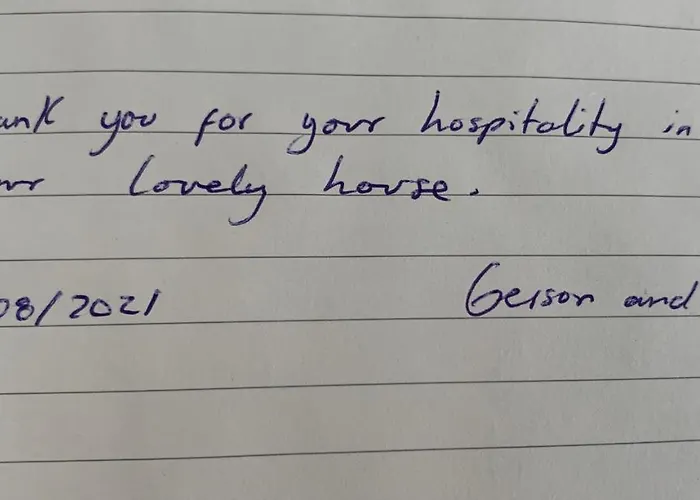 ank you for your hospitality in
ur lovely house.
08/2021 Gerson and